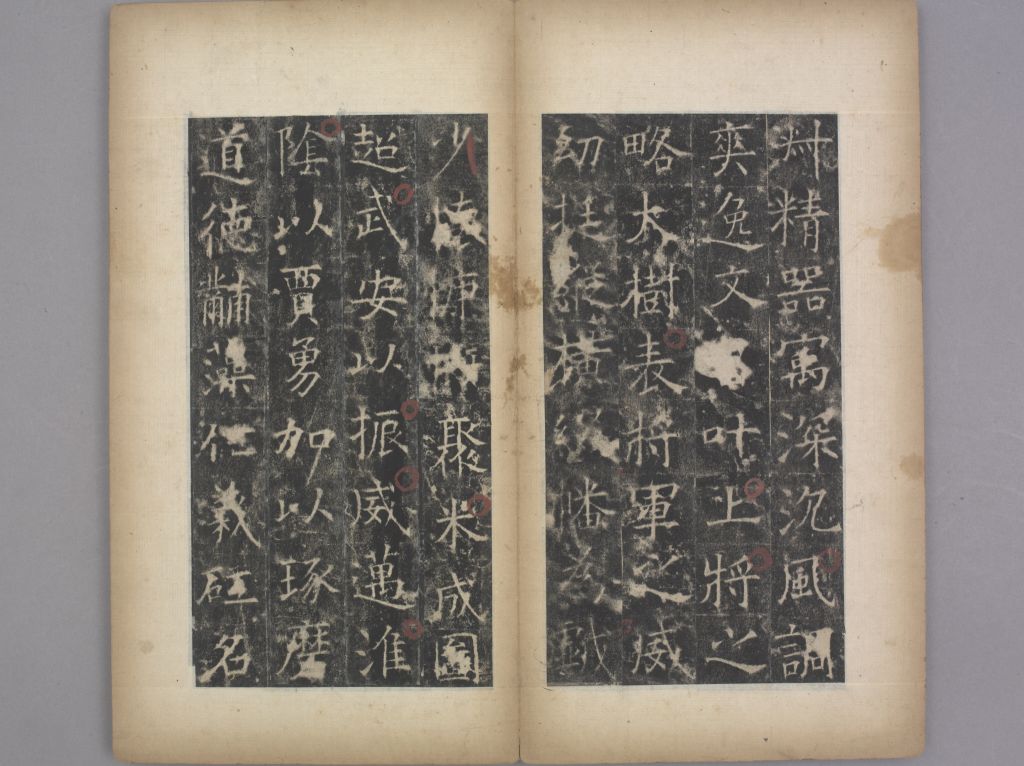 精器寓深沉風調
爽逸文叶上將之
略大樹表將軍之威
幼挺縱橫
少懷聚米成圖
超武安以振威邁淮
陰以賈勇加以琢磨
道德黼藻仁義砥名